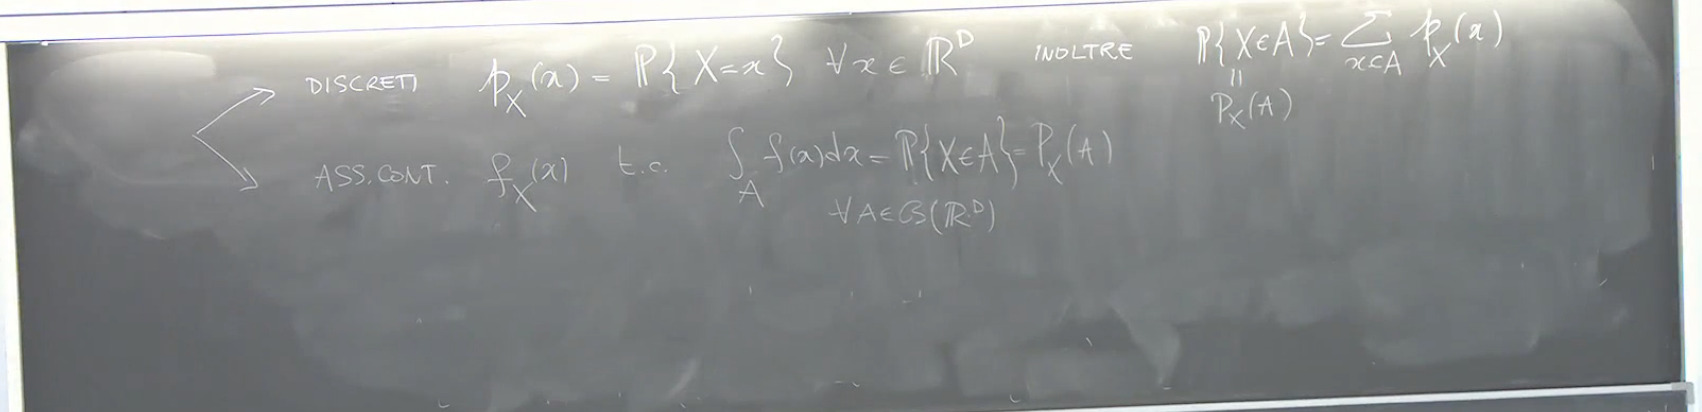 DISCRETI p_X(x) = ℙ{X=x} ∀x∈ℝ^D INOLTRE ℙ{X∈A} = ∑_{x∈A} p_X(x)
=
P_X(A)
ASS. CONT. f_X(x) t.c. ∫_A f(x)dx = ℙ{X∈A} = P_X(A)
∀A∈ℬ(ℝ^D)